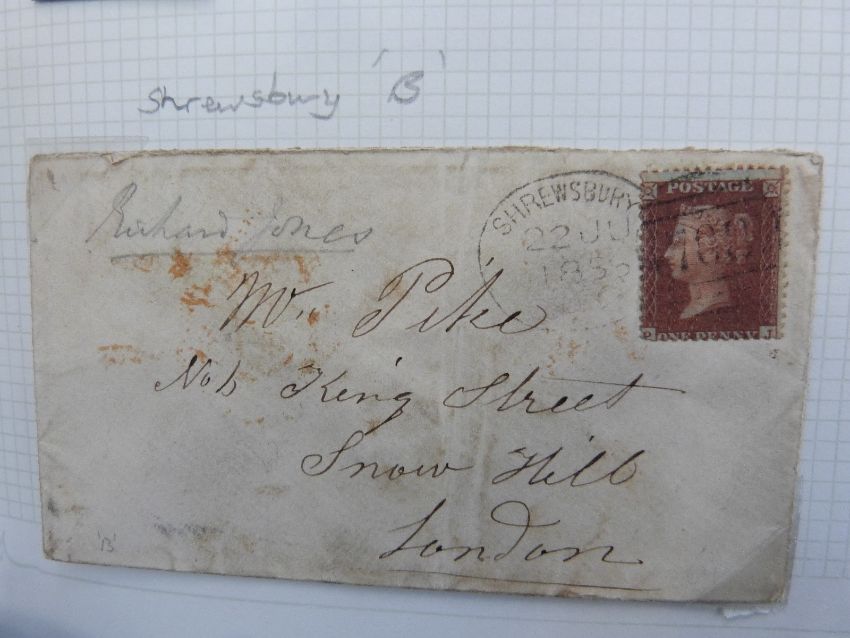 Shrewsbury 'B'
Richard Jones
SHREWSBURY
22 JU
185
POSTAGE
708
P ONE PENNY J
Mr. Pike
King Street
Snow Hill
London
'B'